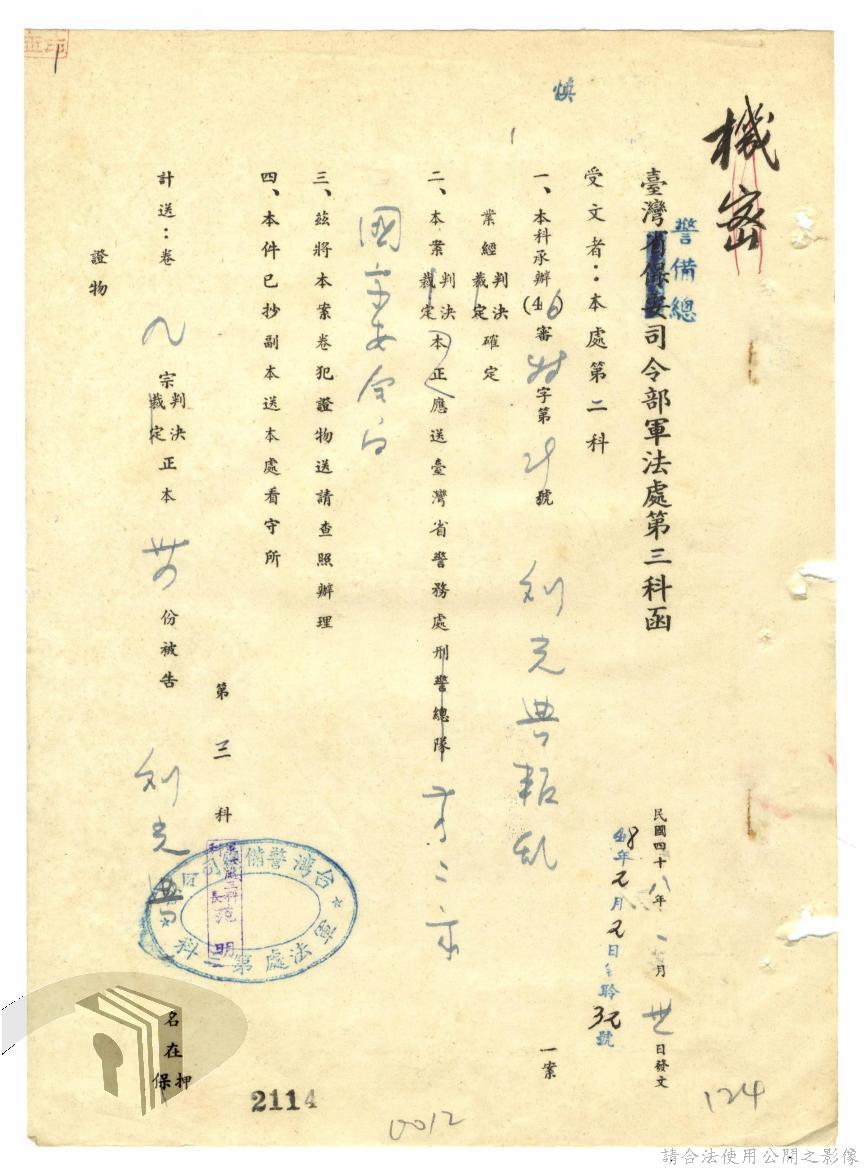 機密
臺灣省保安司令部軍法處第三科函
警備總
受文者：本處第二科
民國四十八年一月廿日發文
48年元月元日
號
煥
一、本科承辦(46)審特字第21號 劉光典叛乱 一案
業經判決裁定確定
二、本案判決裁定正本應送臺灣省警務處刑警總隊
國家安全局
三、茲將本案卷犯證物送請查照辦理
四、本件已抄副本送本處看守所
第三科
台灣警備總司令部
軍法處第三科
科長
范明
計送：卷八宗判決裁定正本 份被告 劉光典 名在押保
證物
2114
0012
124
請合法使用公開之影像